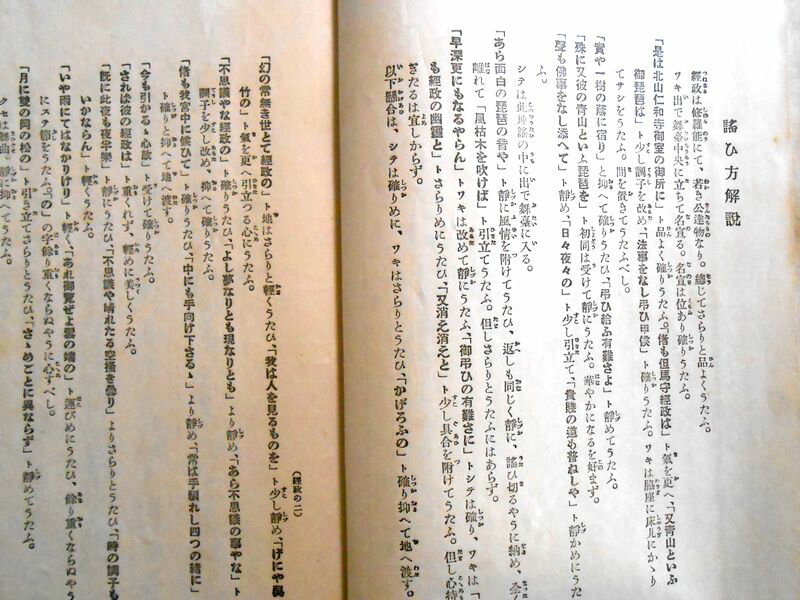 謠ひ方解說
經政は修羅能にて、若き公達物なり。總じてさらりと品よくうたふ。
ワキ出で舞臺中央に立ちて名宣る。名宣は位あり確りうたふ。
「是は北山仁和寺御室の御所に」ト品よく確りうたふ。「偖も但馬守經政は」ト氣を更へ、「又青山といふ
御琵琶は」ト少し調子を改め、「法事をなし弔ひ申候」ト確りうたふ。ワキは脇座に床几にかゝり
てサシをうたふ。間を置きてうたふべし。
「實や一樹の蔭に宿り」と抑へて確りうたひ、「弔ひ給ふ有難さよ」ト靜めてうたふ。
「殊に又彼の青山といふ琵琶を」ト初同は受けて靜にうたふ。華やかになるを好まず。
「聲も佛事をなし添へて」ト靜め、「日々夜々の」ト少し引立て、「貴賤の道も普ねしや」ト靜かめにうた
ふ。
シテは此坤謠の中に出で舞臺に入る。
「あら面白の琵琶の音や」ト靜に風情を附けてうたひ、返しも同じく靜に、謠ひ切るやうに納め、全く
離れて「風枯木を吹けば」ト引立てうたふ。但しさらりとうたふにはあらず。
「早深更にもなるやらん」トワキは改めて靜にうたふ、「御弔ひの有難さに」トシテは確り、ワキは「
も經政の幽靈と」トさらりめにうたひ、「又消え消えと」ト少し具合を附けてうたふ。但し心持
ぎたるは宜しからず。
以下懸合は、シテは確りめに、ワキはさらりとうたひ、「かげろふの」ト確り抑へて地へ渡す。
(經政の二)
「幻の常無き世とて經政の」ト地はさらりと輕くうたひ、「我は人を見るものを」ト少し靜め、「げにや吳
竹の」ト氣を更へ引立つる心にうたふ。
「不思議やな經政の」ト確りうたひ、「よし夢なりとも現なりとも」より靜め、「あら不思議の事やな」ト
調子を少し改め、抑へて確りうたふ。
「偖も我宮中に候ひて」ト確りうたひ、「中にも手向け下さるゝ」より靜め、「常は手馴れし四つの緒に」
ト確りと抑へて地へ渡す。
「今も引かるゝ心故」ト受けて確りうたふ。
「されば彼の經政は」ト重くれず、輕めに美しくうたふ。
「既に此夜も夜半樂」ト靜にうたひ、「不思議や晴れたる空搔き曇り」よりさらりとうたひ、「時の調子も
いかならん」ト輕くうたふ。
「いや雨にてはなかりけり」ト輕く、「あれ御覽ぜよ雲の端の」ト運びめにうたひ、餘り重くならぬやう
にスヱ節をうたふ。「の」の字餘り重くならぬやうに心すべし。
「月に雙の岡の松の」ト引き立てさらりとうたひ、「さゝめごとに異ならず」ト靜めてうたふ。
クセは舞曲、靜に抑へてうたふ。